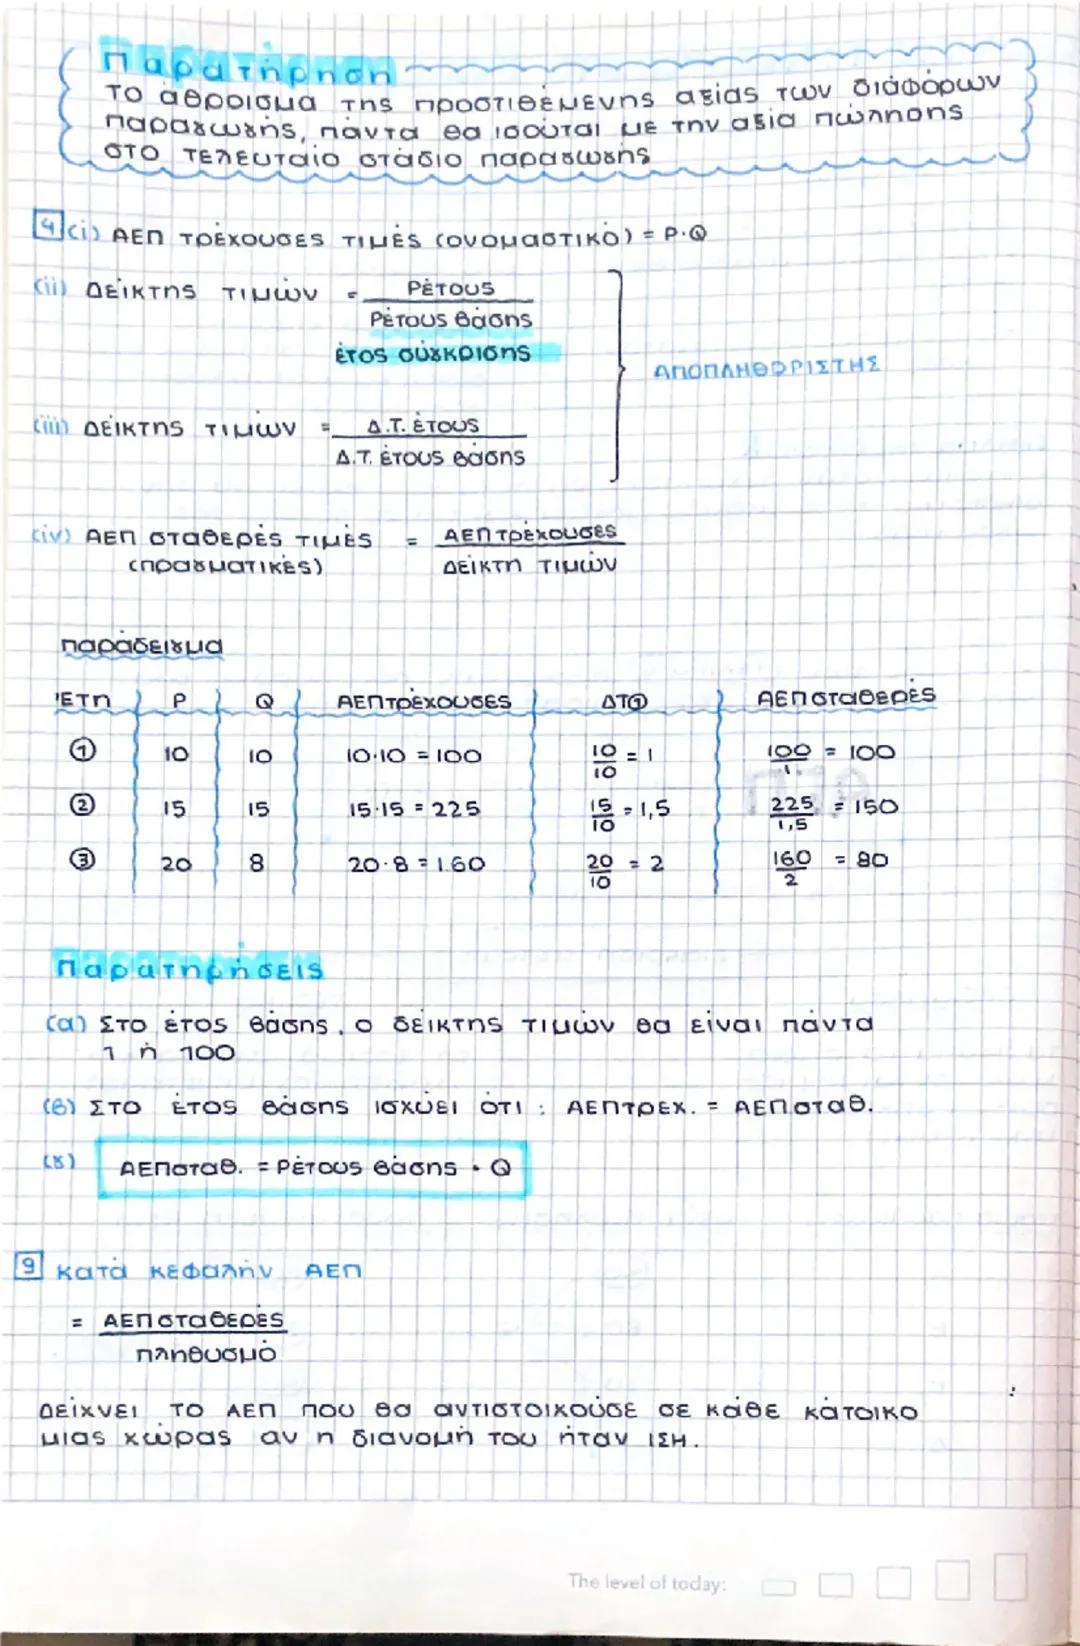 Παρατήρηση
Το άθροισμα της προστιθέμενης αξίας των διάφόρων
παραγωγής, πάντα θα ισούται με την αξία πώλησης
στο τελευταίο στάδιο παραγωγής
4 (i) ΑΕΠ τρέχουσες τιμές (ονομαστικό) = P·Q
(ii) Δείκτης τιμών = Pέτους
Pέτους βάσης
έτος σύγκρισης
ΑΠΟΠΛΗΘΩΡΙΣΤΗΣ
(iii) Δείκτης τιμών = Δ.Τ. έτους
Δ.Τ. έτους βάσης
(iv) ΑΕΠ σταθερές τιμές = ΑΕΠ τρέχουσες
(πραγματικές) Δείκτη τιμών
παράδειγμα
Έτη P Q ΑΕΠτρέχουσες ΔΤ① ΑΕΠσταθερές
① 10 10 10·10 = 100 10/10 = 1 100/1 = 100
② 15 15 15·15 = 225 15/10 = 1,5 225/1,5 = 150
③ 20 8 20·8 = 160 20/10 = 2 160/2 = 80
Παρατηρήσεις
(α) Στο έτος βάσης, ο δείκτης τιμών θα είναι πάντα
1 ή 100
(β) Στο έτος βάσης ισχύει ότι: ΑΕΠτρεχ. = ΑΕΠσταθ.
(γ) ΑΕΠσταθ. = Pέτους βάσης · Q
9 Κατά κεφαλήν ΑΕΠ
= ΑΕΠσταθερές
πληθυσμό
Δείχνει το ΑΕΠ που θα αντιστοιχούσε σε κάθε κάτοικο
μιας χώρας αν η διανομή του ήταν ΙΣΗ.
The level of today: